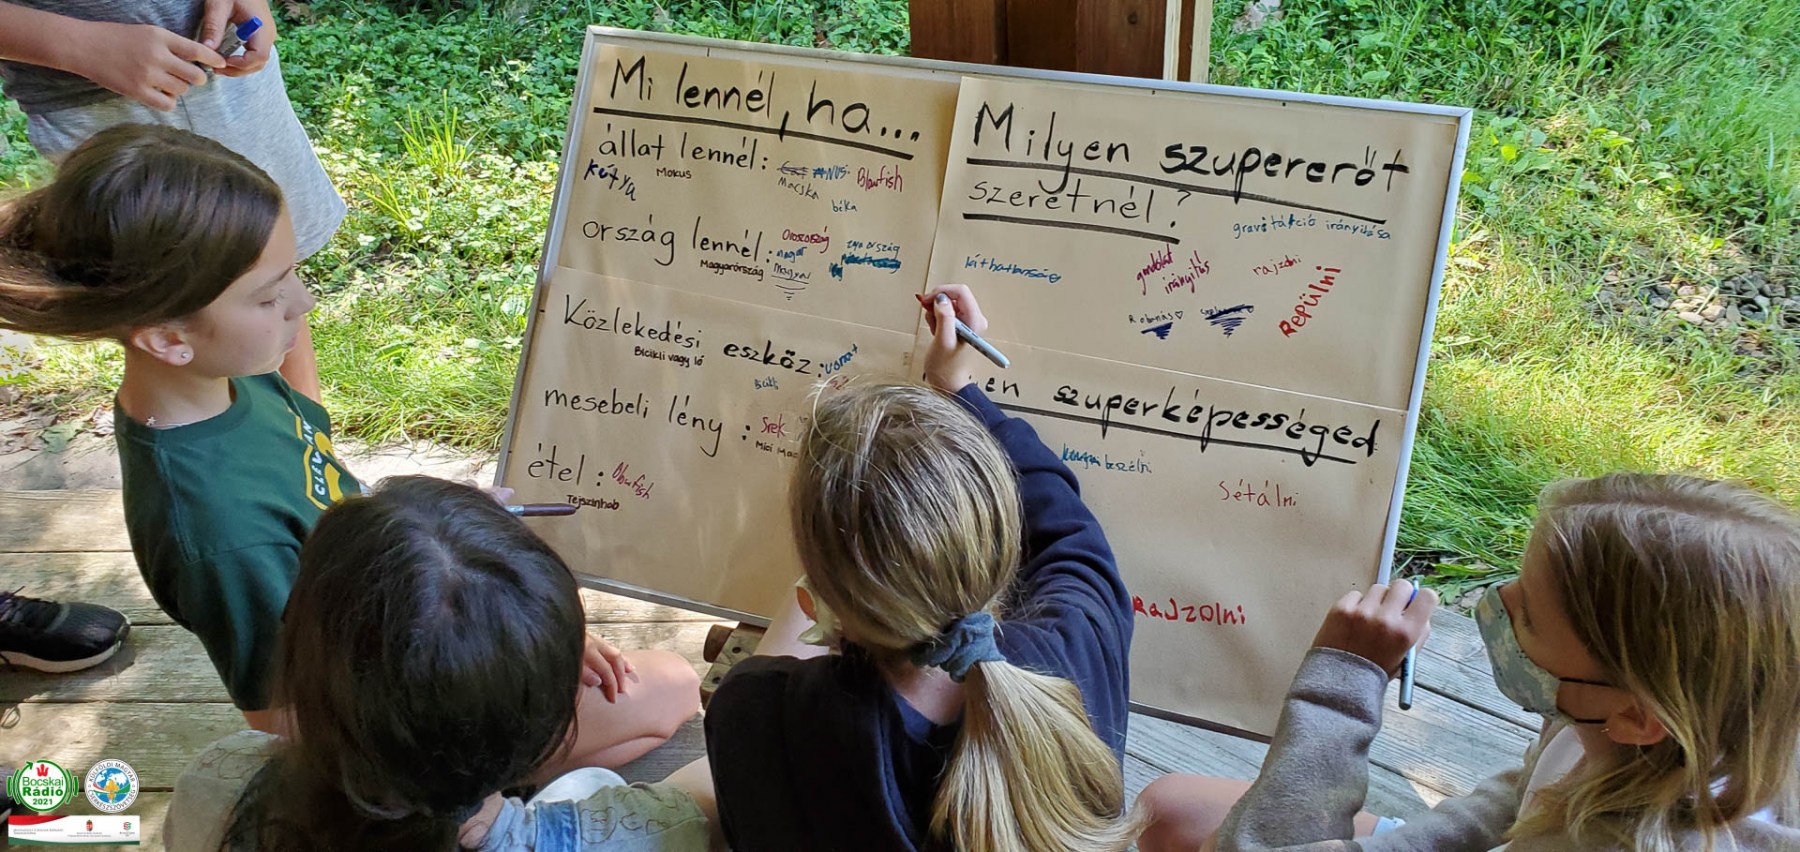 Mi lennél, ha...
állat lennél:
Mókus
Macska
Blowfish
kutya
béka
ország lennél:
Oroszország
Magyarország
magyar
Közlekedési eszköz:
vonat
Bicikli vagy ló
Bicikli
mesebeli lény:
Srek
Mici Mac
étel:
Blowfish
Tejszínhab
Milyen szupererőt
szeretnél?
gravitáció irányitása
láthatatlanság
gondolat
irányitás
rajzolni
Repülni
Robanás
en szuperképességed
beszélni
Sétálni
Rajzolni
CLEV
Bocskai
Rádió
2021
KÜLFÖLDI MAGYAR
CSERKÉSZSZÖVETSÉG